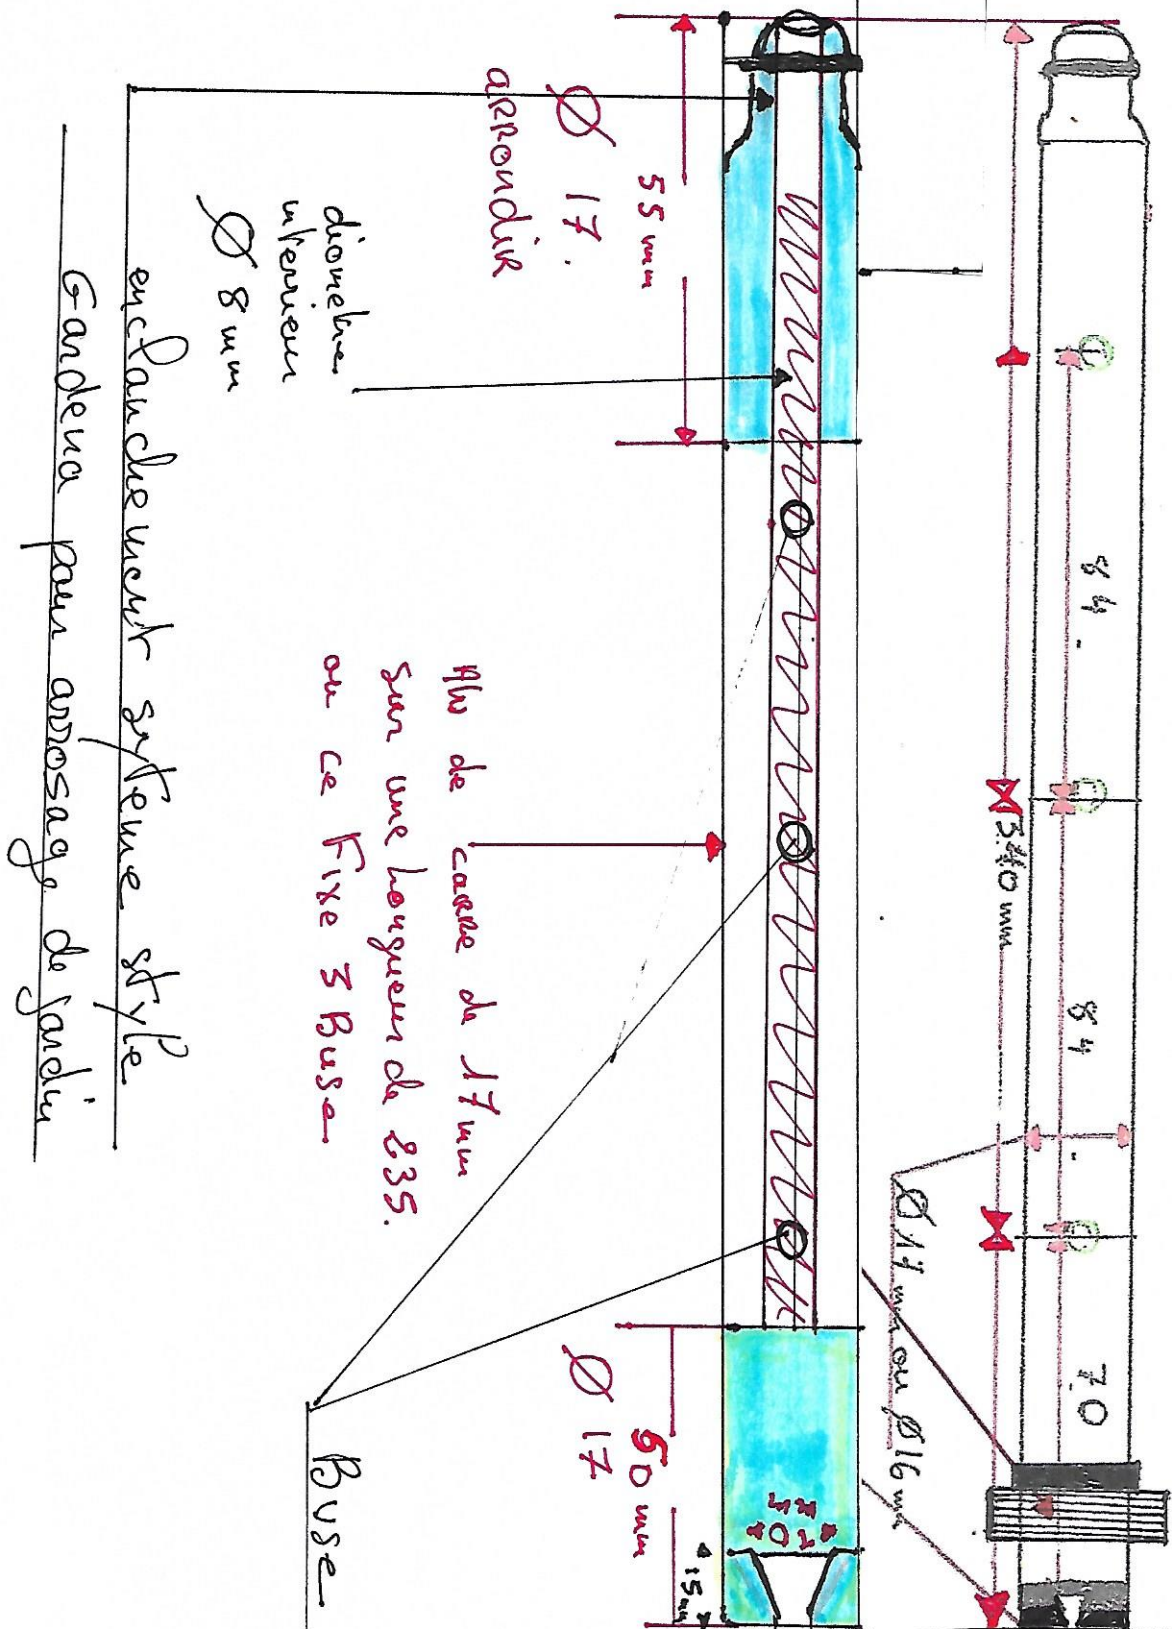 84.
84
70
3.40 mm
Ø 14 mm ou Ø 16 mm
55 mm
Ø 17.
ARRondir
diametre
interieur
Ø 8 mm
Alu de carre de 17 mm
Sur une longueur de 235.
ou ce Fixe 3 Buse
50 mm
Ø 17
15 mm
Buse
enclanchement systeme style
Gardena pour arrosage de jardin